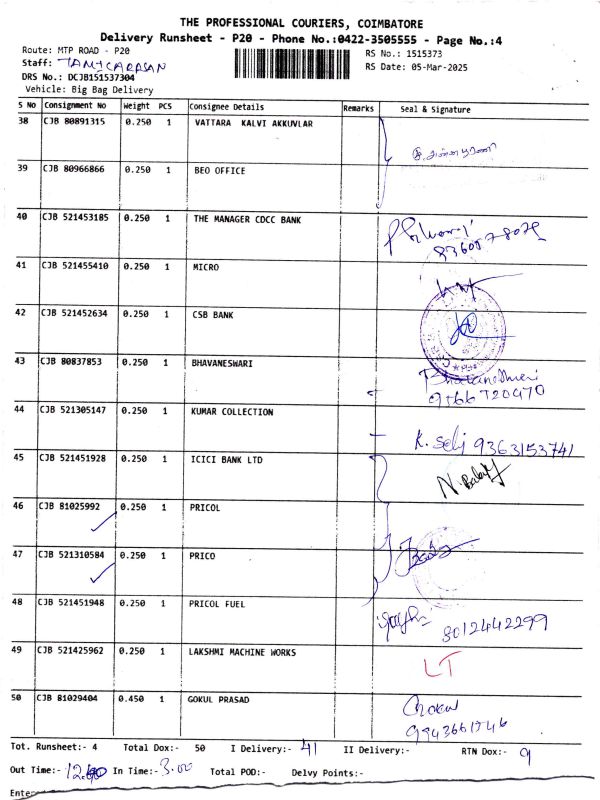 THE PROFESSIONAL COURIERS, COIMBATORE
Delivery Runsheet - P20 - Phone No.:0422-3505555 - Page No.:4
Route: MTP ROAD - P20
RS No.: 1515373
Staff:
RS Date: 05-Mar-2025
DRS No.: DCJB151537304
Vehicle: Big Bag Delivery
S No Consignment No Weight PCS Consignee Details Remarks Seal & Signature
38 CJB 80891315 0.250 1 VATTARA KALVI AKKUVLAR
39 CJB 80966866 0.250 1 BEO OFFICE
40 CJB 521453185 0.250 1 THE MANAGER CDCC BANK
41 CJB 521455410 0.250 1 MICRO
42 CJB 521452634 0.250 1 CSB BANK
43 CJB 80837853 0.250 1 BHAVANESWARI
44 CJB 521305147 0.250 1 KUMAR COLLECTION
K. Selj 9363153741
45 CJB 521451928 0.250 1 ICICI BANK LTD
46 CJB 81025992 0.250 1 PRICOL
47 CJB 521310584 0.250 1 PRICO
48 CJB 521451948 0.250 1 PRICOL FUEL
8012442299
49 CJB 521425962 0.250 1 LAKSHMI MACHINE WORKS
LT
50 CJB 81029404 0.450 1 GOKUL PRASAD
Gokul
Tot. Runsheet:- 4 Total Dox:- 50 I Delivery:- 41 II Delivery:- RTN Dox:- 9
Out Time:- In Time:- 3.00 Total POD:- Delvy Points:-